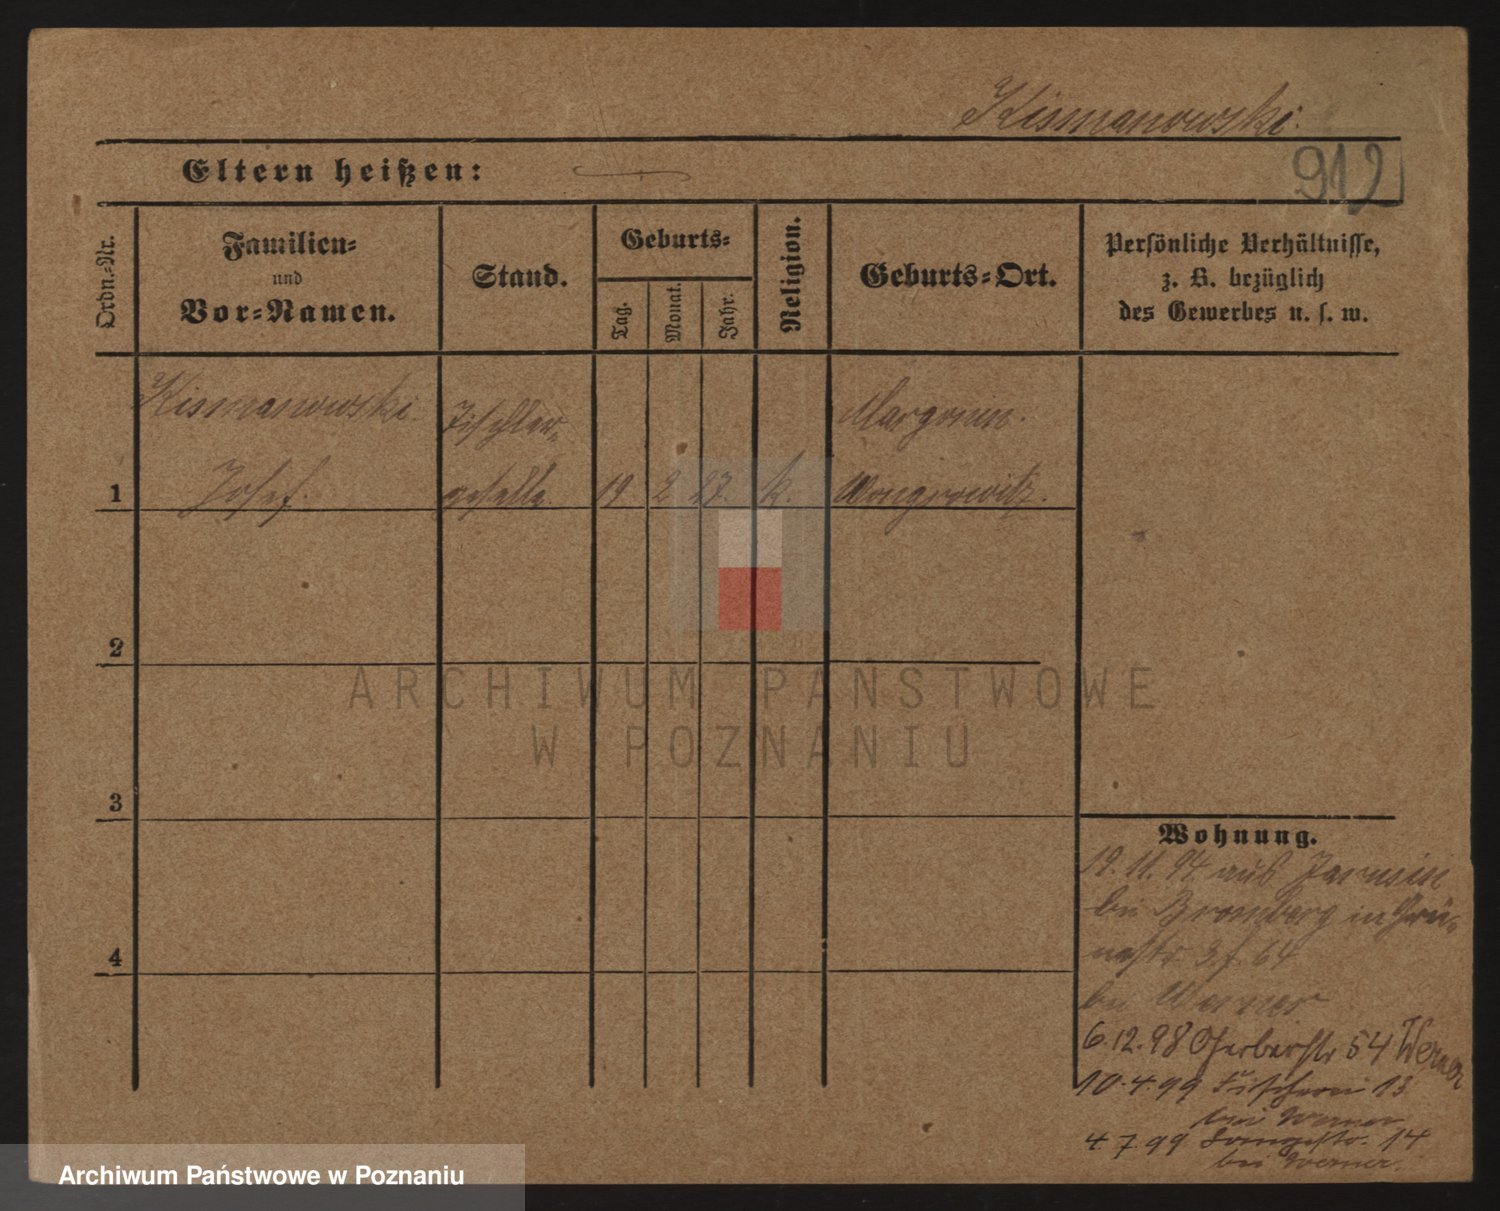 Kismanowski.
Eltern heißen:
912
Ordn.-Nr.
Familien-
und
Vor-Namen.
Stand.
Geburts-
Tag.
Monat.
Jahr.
Religion.
Geburts-Ort.
Persönliche Verhältnisse,
z. B. bezüglich
des Gewerbes u. s. w.
Kismanowski.
Tischler-
Margonin.
1
Josef.
geselle.
19
2
27.
k.
Wongrowitz.
2
3
4
Wohnung.
19. 11. 94. aus
bei Bromberg in Grü-
nestr. 3 f. 64
bei Werner
6.12.98 Gerberstr 54 Werner
10.4.99 Fischerei 13
bei Werner
4.7.99 Langestr. 14
bei Werner.
ARCHIWUM PAŃSTWOWE
W POZNANIU
Archiwum Państwowe w Poznaniu